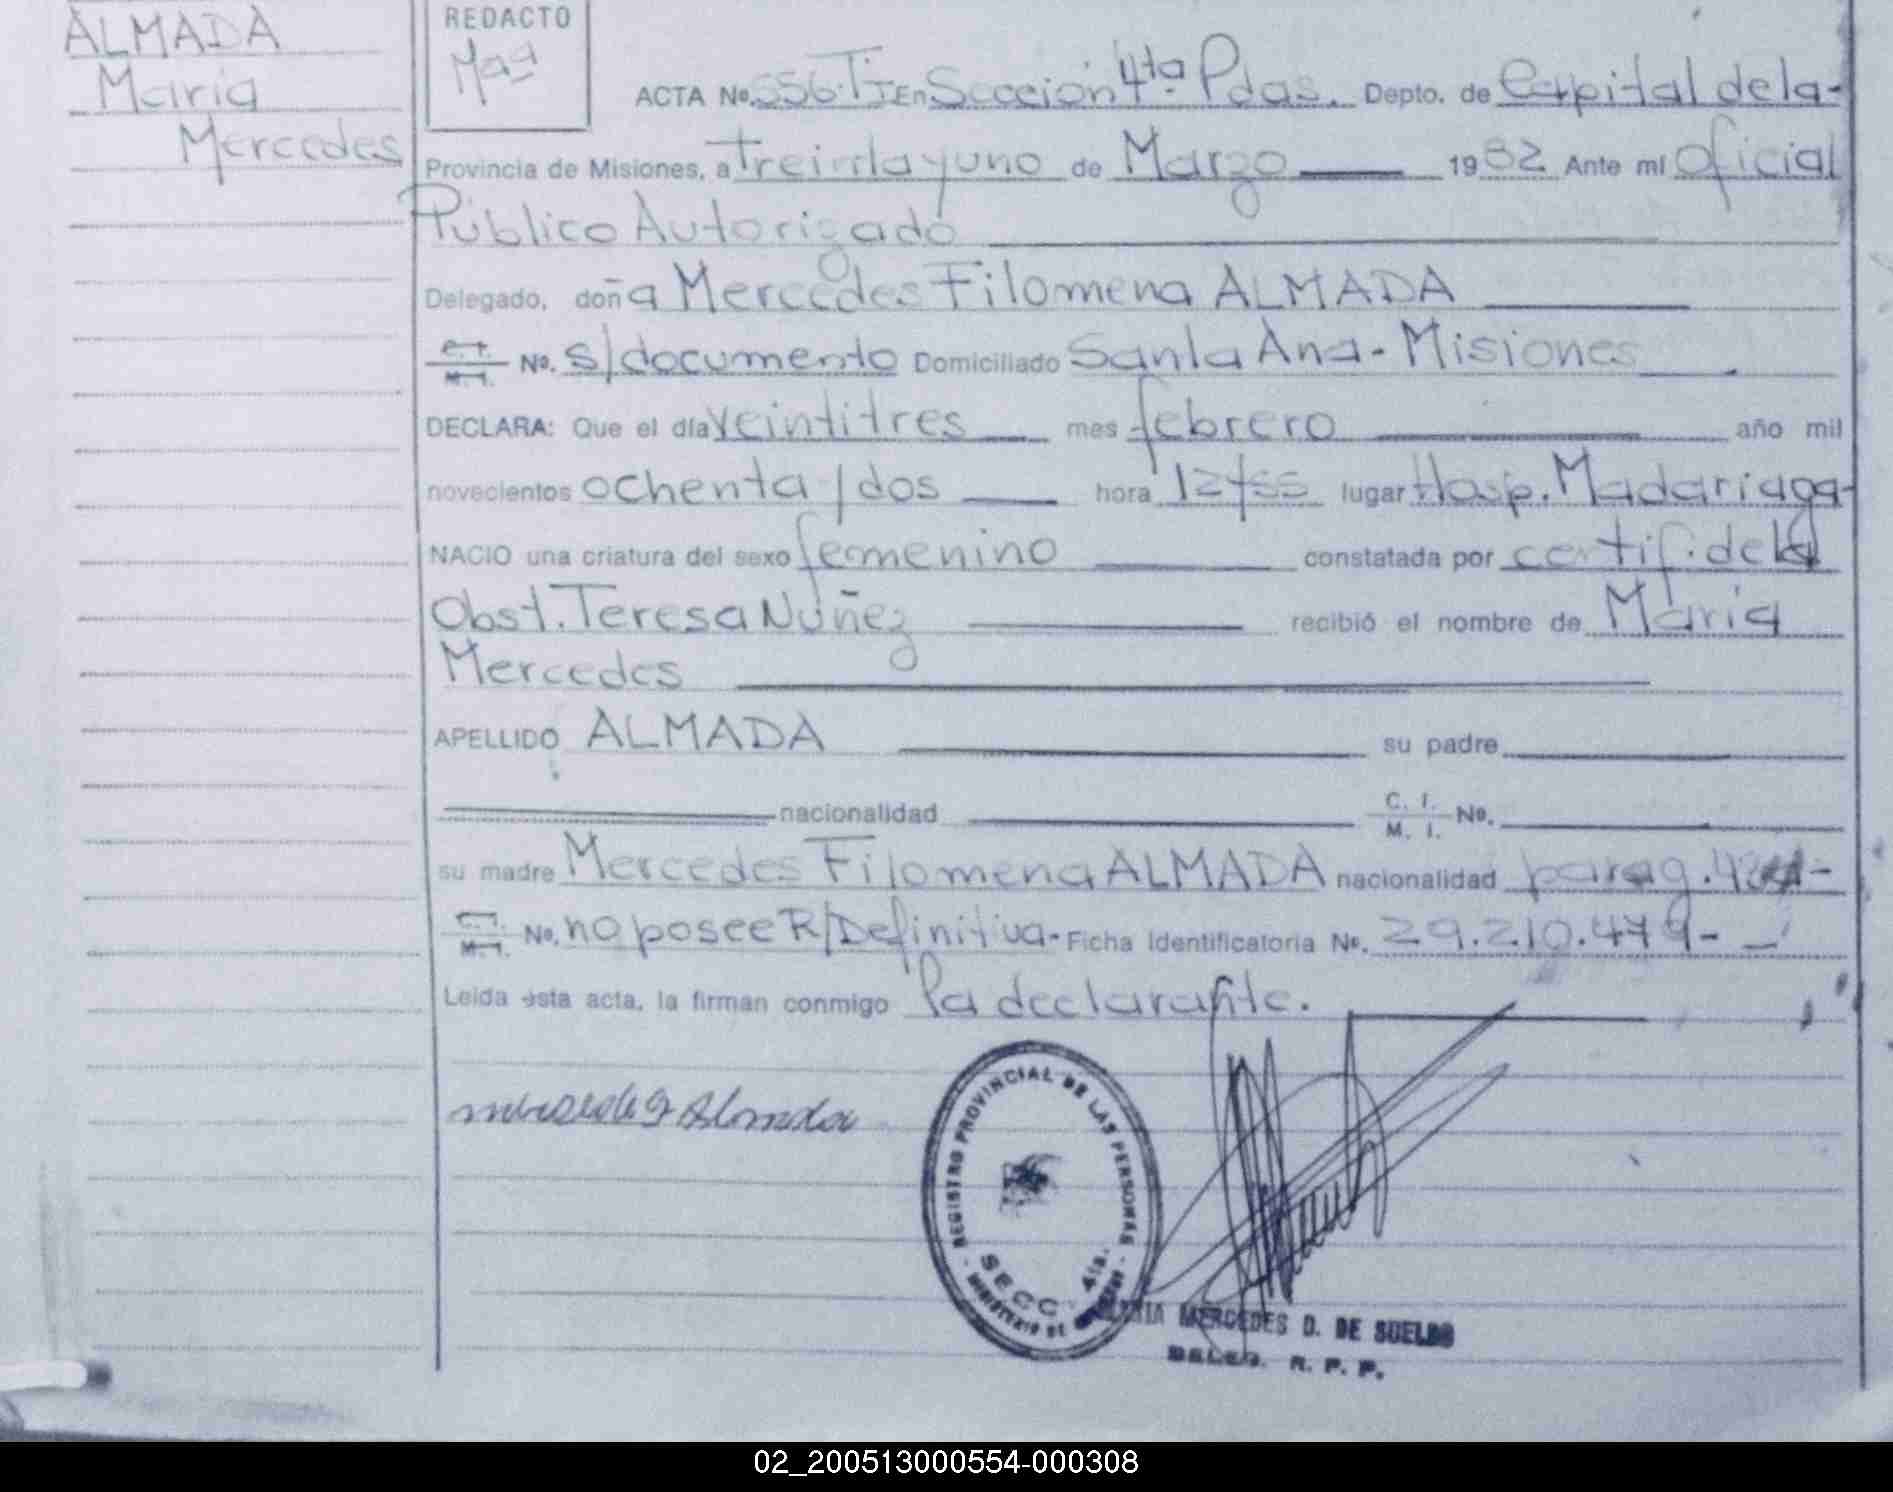 ALMADA
Maria
Mercedes
REDACTO
Maa
ACTA No. 556.TI En Sección 4ta. Pdas. Depto. de Capital de la-
Provincia de Misiones, a treinta y uno de Marzo 1982 Ante mí Oficial
Público Autorizado
Delegado, doña Mercedes Filomena ALMADA
C.I. M.I. No. s/documento Domiciliado Santa Ana - Misiones
DECLARA: Que el día veintitres mes febrero año mil
novecientos ochenta/dos hora 12/55 lugar Hosp. Madariaga-
NACIO una criatura del sexo femenino constatada por certif. de la
Obst. Teresa Nuñez recibió el nombre de Maria
Mercedes
APELLIDO ALMADA su padre
nacionalidad C. I. M. I. No.
su madre Mercedes Filomena ALMADA nacionalidad parag.
C.I. M.I. No. no posee R/Definitiva- Ficha Identificatoria No. 29.210.479-
Leída ésta acta, la firman conmigo la declarante.
Almada
REGISTRO PROVINCIAL DE LAS PERSONAS
SECC. 4ta.
MINISTERIO DE
MARIA MERCEDES D. DE SUELDO
DELEG. R. P. P.
02_200513000554-000308